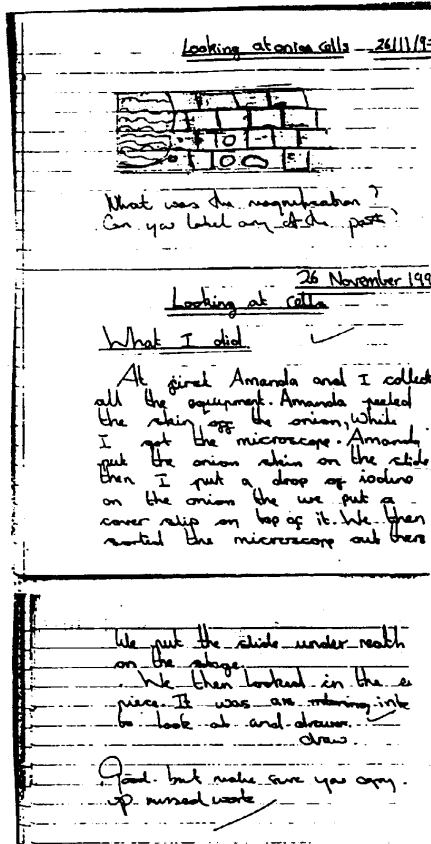 Looking at onion cells 26/11/9
What was the magnification?
Can you label any of the parts?
26 November 199
Looking at cells
What I did
At first Amanda and I collect
all the equipment. Amanda peeled
the skin off the onion, while
I got the microscope. Amanda
put the onion skin on the slide
then I put a drop of iodine
on the onion the we put a
cover slip on top of it. We then
sorted the microscope out then
We put the slide under
on the stage.
We then looked in the e
piece. It was an inte
to look at and drawer
draw
Good. but make sure you copy
up missed work